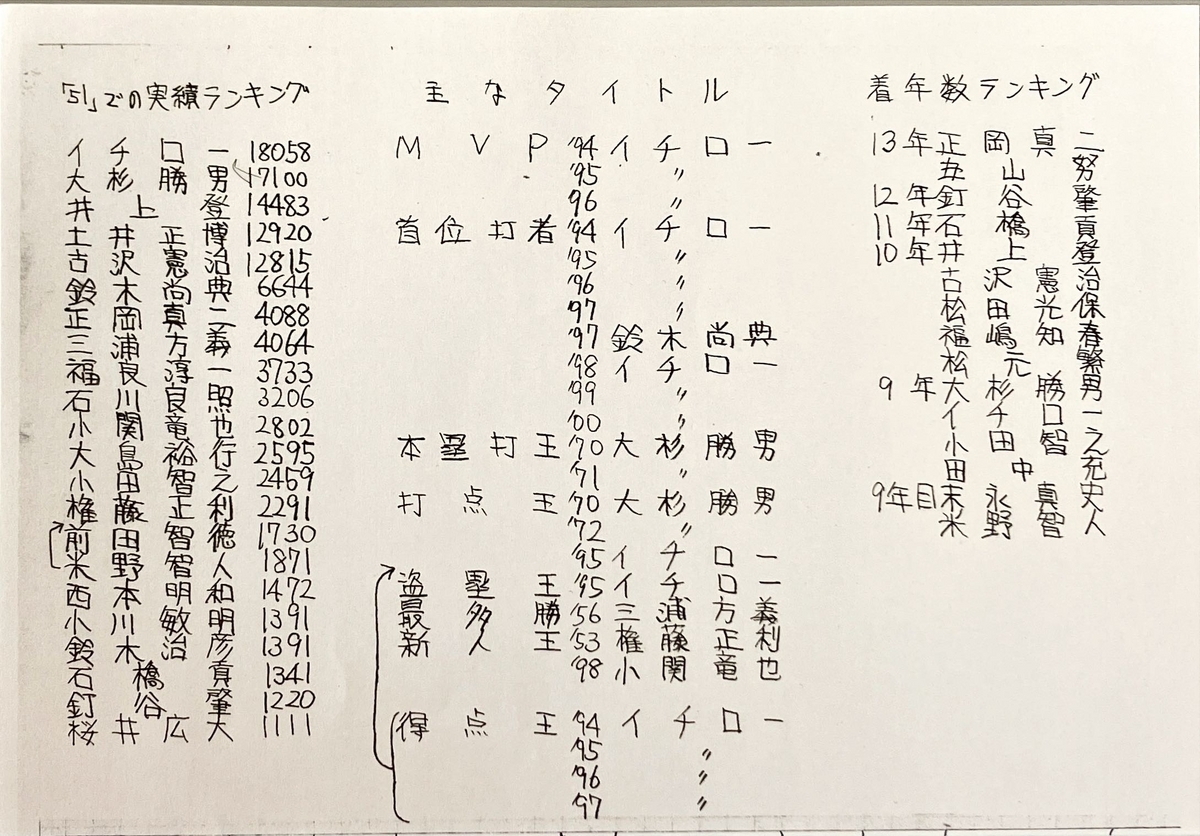 「51」での実績ランキング
イチロー 18058
大杉勝男 17100
井上登 14483
土井正博 12920
古沢憲治 12815
鈴木尚典 6644
正岡真二 4088
三浦方義 4064
福良淳一 3733
石川良照 3206
小関竜也 2802
大島裕行 2595
小田智之 2469
権藤正利 2291
前田智徳 1730
米野智人 1871
西本明和 1472
小川敏明 1391
鈴木治彦 1391
石橋貢 1341
釘谷肇 1220
桜井広大 1111
主なタイトル
MVP '94 イチロー
'95 〃
'96 〃
首位打者 '94 イチロー
'95 〃
'96 〃
'97 〃
'97 鈴木尚典
'98 イチロー
'99 〃
'00 〃
本塁打王 '70 大杉勝男
'71 〃
打点王 '70 大杉勝男
'72 〃
'95 イチロー
盗塁王 '95 イチロー
最多勝 '56 三浦方義
新人王 '53 権藤正利
'98 小関竜也
得点王 '94 イチロー
'95 〃
'96 〃
'97 〃
着年数ランキング
13年 正岡真二
五山努
12年 釘谷肇
11年 石橋貢
10年 井上登
古沢憲治
松田光保
福嶋知春
松元繁
9年 大杉勝男
イチロー
小田智之
田中充
9年目 末永真史
米野智人